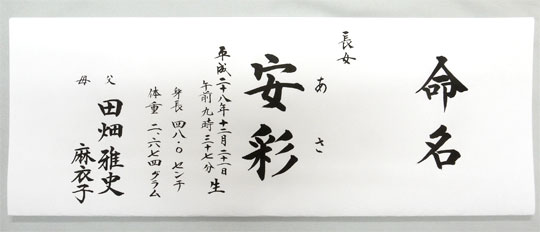 命名
長女
あさ
安彩
平成二十八年十二月二十一日
午前九時三十七分 生
身長 四八・〇 センチ
体重 二、六七四グラム
父 田畑 雅史
母 麻衣子